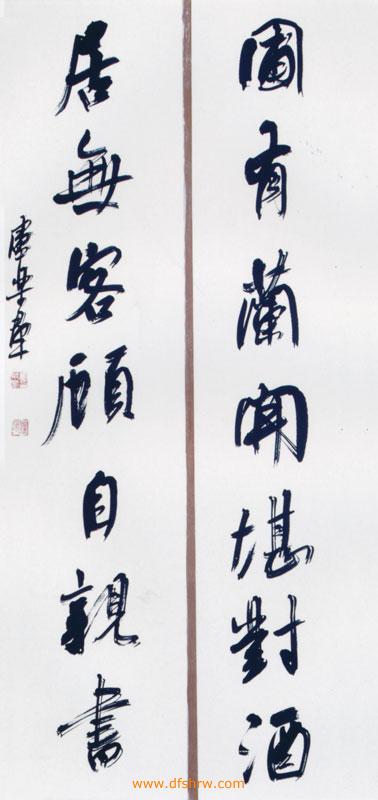 圃有蘭開堪對酒
居無客顧自親書
www.dfshrw.com